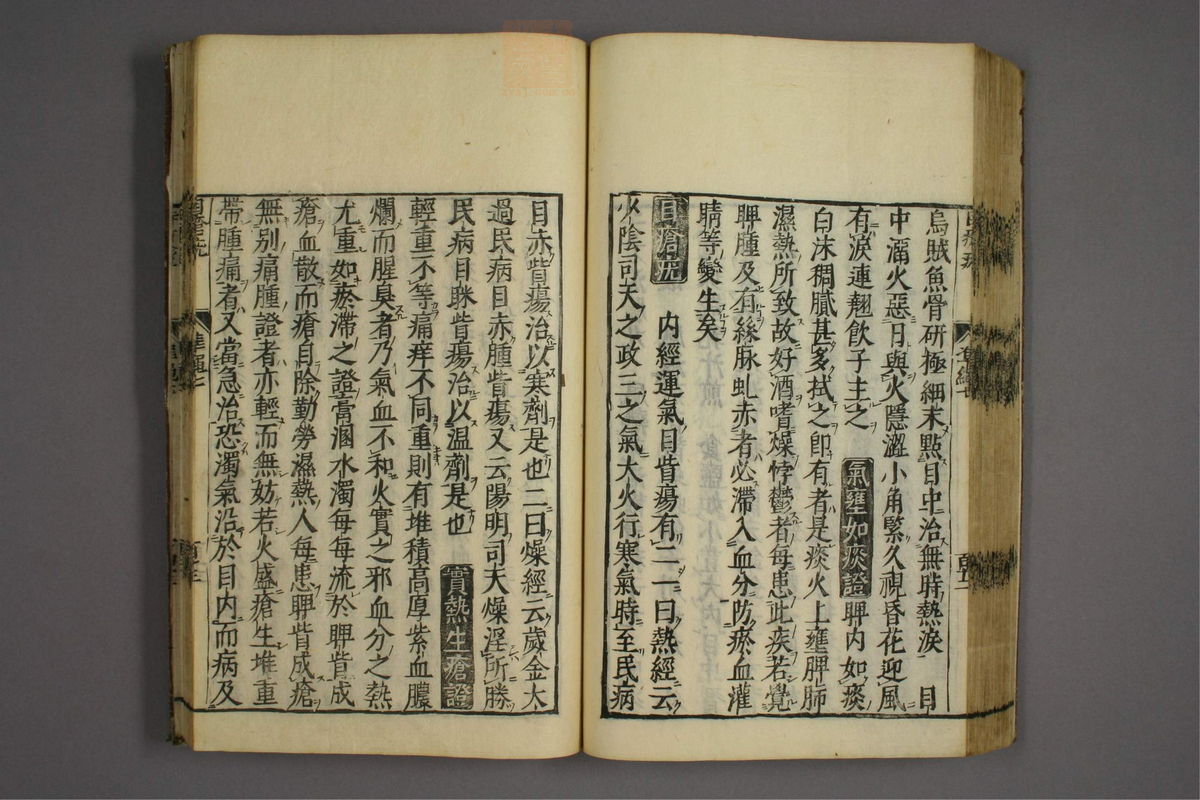 烏賊魚骨研極細末點目中治無時熱淚 目
中溜火惡日與火隱澀小角緊久視昏花迎風
有淚連翹飲子主之 氣壅如痰證 睥內如痰
白沫稠膩甚多拭之即有者是痰火上壅脾肺
濕熱所致故好酒嗜燥悖鬱者每患此疾若覺
睥腫及有絲脉虬赤者必滯入血分防瘀血灌
睛等變生矣
目瘡疣 內經運氣目眥瘍有二一曰熱經云
少陰司天之政三之氣大火行寒氣時至民病
目赤眥瘍治以寒劑是也二曰燥經云歲金太
過民病目赤腫眥瘍又云陽明司天燥淫所勝
民病目眯眥瘍治以温劑是也 實熱生瘡證
輕重不等痛痒不同重則有堆積高厚紫血膿
爛而腥臭者乃氣血不和火實之邪血分之熱
尤重如瘀滯之證膏溷水濁每每流於睥眥成
瘡血散而瘡自除勤勞濕熱人每患睥眥成瘡
無別痛腫證者亦輕而無妨若火盛瘡生堆重
帶腫痛者又當急治恐濁氣沿於目內而病及